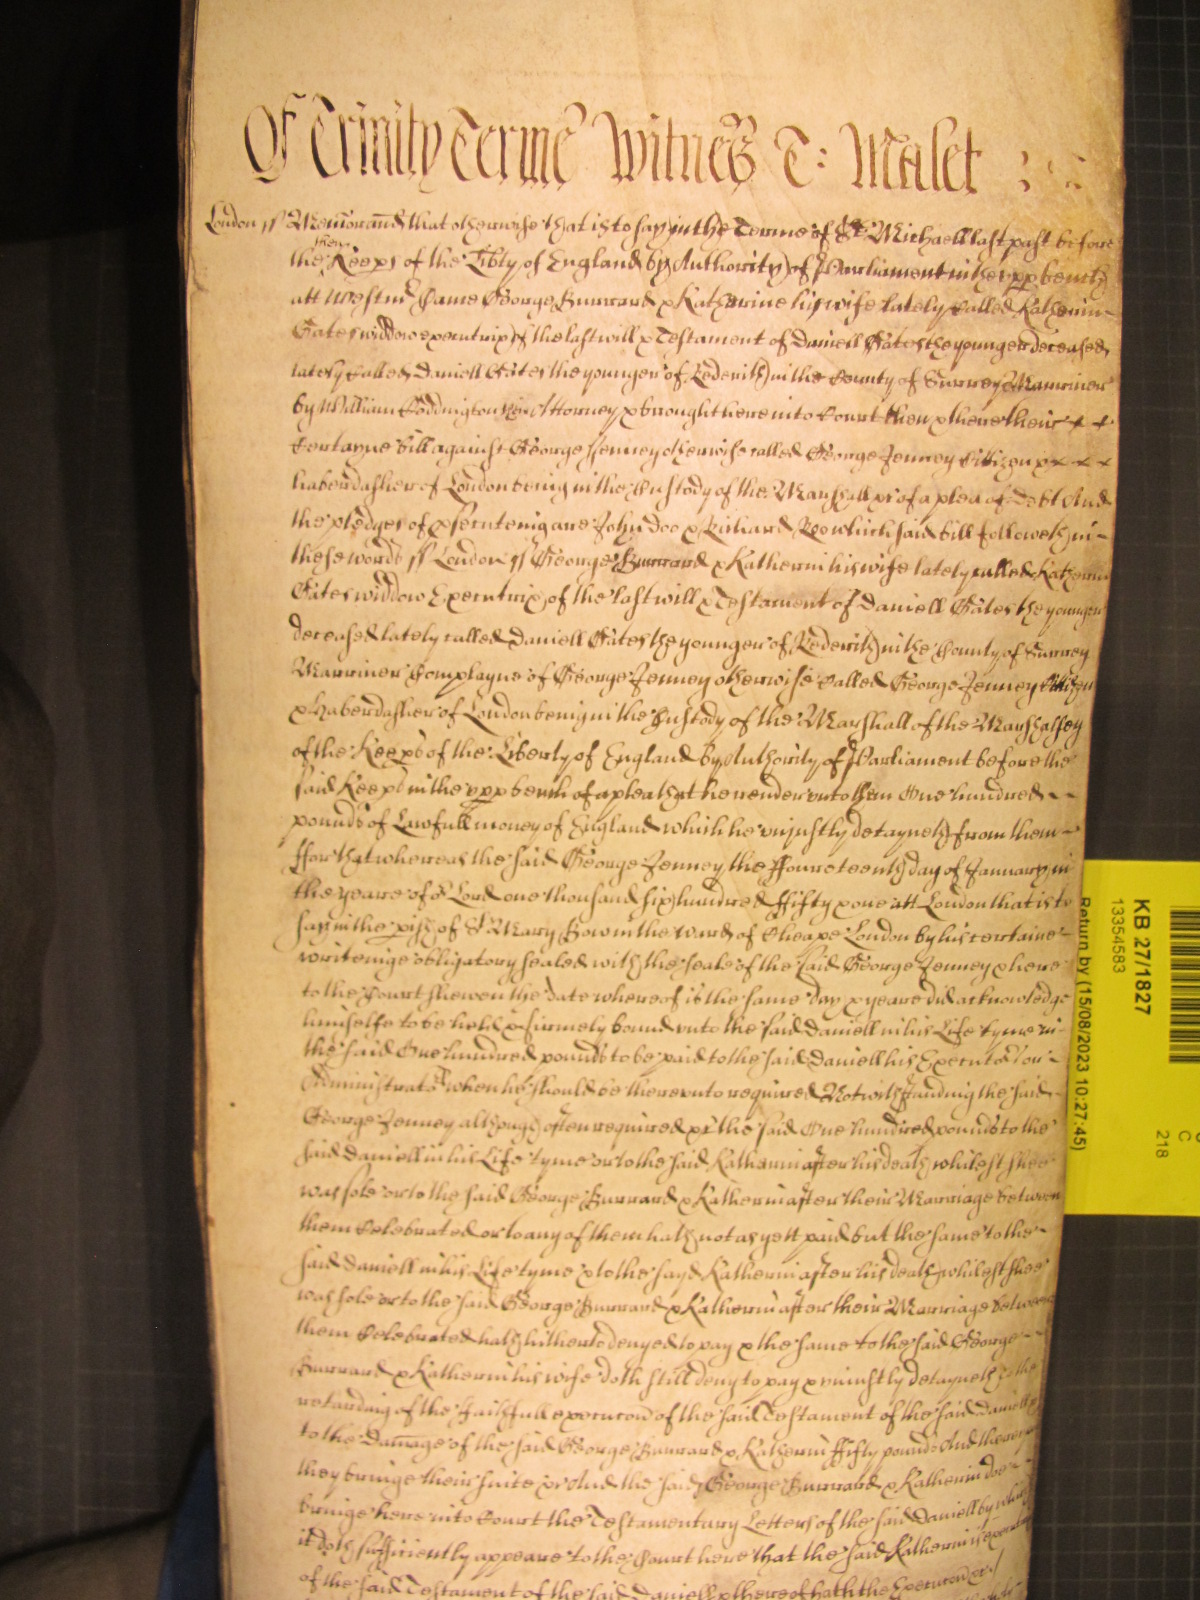 Of Trinity Terme Witnes T: Malet
London ss Memorand that otherwise that is to say in the Terme of St Michaell last past before
the then Keeps of the Libty of England by Authority of Parliament in the upp bench
att Westm Came George Burrard & Katherine his wife lately Called Katherin
Gates widdow executrix of the last will & Testament of Daniell Gates the younger deceased
lately Called Daniell Gates the younger of Rederith in the County of Surrey Marriner
by William Coddington their Attorney & brought here into Court then & there their
Certayne bill against George Jenney otherwise called George Jenney Cittizen &
haberdasher of London being in the Custody of the Marshall &c of a plea of Debt And
the pledges of psecuteing are John Doo & Richard Roo which said bill followeth in
these words ss London ss George Burrard & Katherin his wife lately called Katherin
Gates widdow Executrix of the last will & Testament of Daniell Gates the younger
deceased lately called Daniell Gates the younger of Rederith in the County of Surrey
Marriner Complayne of George Jenney otherwise Called George Jenney Cittizen
& haberdasher of London being in the Custody of the Marshall of the Marshalsey
of the Keeps of the Liberty of England By Authority of Parliament before the
said Keeps in the upp bench of a plea that he render unto them One hundred
pounds of Lawfull money of England which he unjustly detayneth from them
ffor that whereas the said George Jenney the ffourteenth day of January in
the yeare of or Lord one thousand six hundred ffifty & one att London that is to
say in the pish of St Mary Bow in the ward of Cheape London by his certaine
writeinge obligatory sealed with the seale of the said George Jenney & here
to the Court shewen the date whereof is the same day & yeare did acknowledge
himselfe to be held & firmely bound unto the said Daniell in his Life tyme in
the said One hundred pounds to be paid to the said Daniell his Executors or
Administrators when he should be thereunto required Notwithstanding the said
George Jenney although often required &c the said One hundred pounds to the
said Daniell in his Life tyme or to the said Katherin after his death whilest shee
was sole or to the said George Burrard & Katherin after their Marriage between
them Celebrated or to any of them hath not as yett paid but the same to the
said Daniell in his Life tyme & to the sayd Katherin after his death whilest shee
was sole or to the said George Burrard & Katherin after their Marriage between
them Celebrated hath hitherto denyed to pay & the same to the said George
Burrard & Katherin his wife doth still deny to pay & uniustly detayneth to the
retarding of the faithfull execucon of the said Testament of the said Daniell &
to the Damage of the said George Burrard & Katherin ffifty pounds And thereupon
they bringe their suite &c And the said George Burrard & Katherin doe
bringe here into Court the Testamentary Letters of the said Daniell by which
it doth sufficiently appeare to the Court here that the said Katherin is executrix
of the said Testament of the said Daniell & thereof hath the Execucon &c
KB 27/1827
13354583
Return by (15/08/2023 10:27:45)
C
218